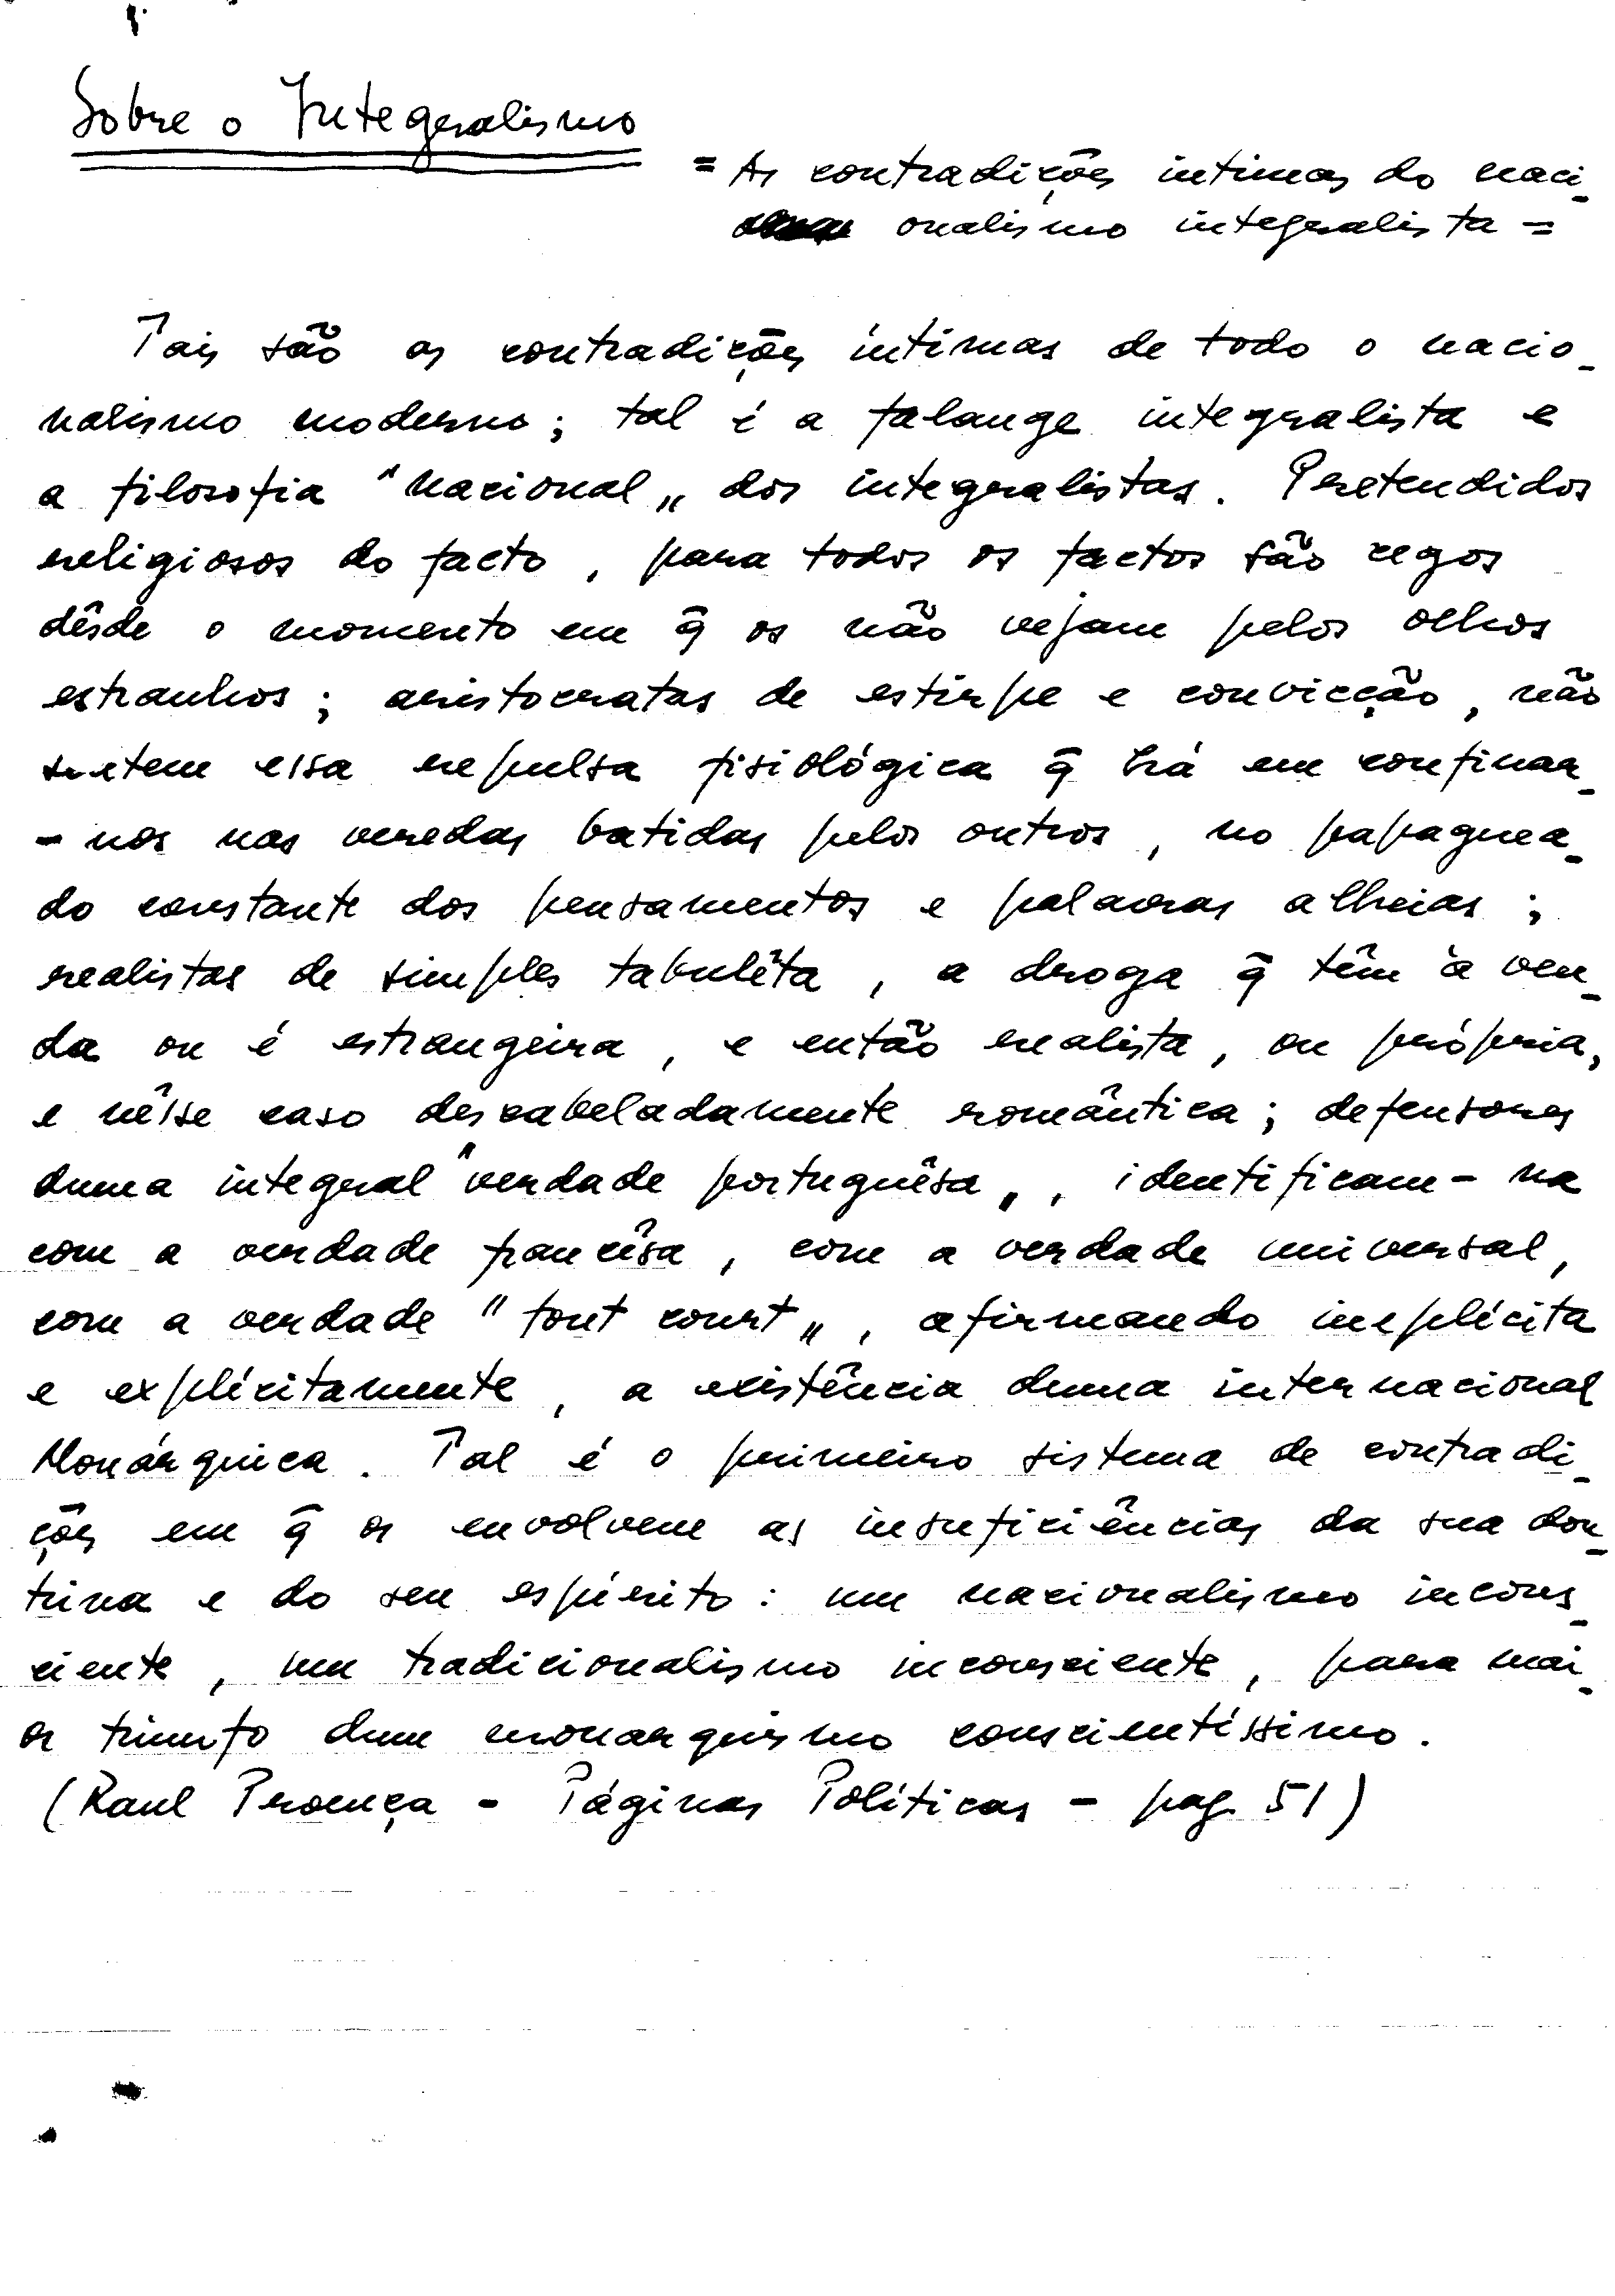 Sobre o Integralismo
= As contradições intimas do naci-
onalismo integralista =
Tais são as contradições íntimas de todo o nacio-
nalismo moderno; tal é a falange integralista e
a filosofia "nacional" dos integralistas. Pretendidos
religiosos do facto, para todos os factos são cegos
dêsde o momento em q̃ os não vejam pelos olhos
estranhos; aristocratas de estirpe e convicção, não
sentem essa repulsa fisiológica q̃ há em confinar-
-nos nas veredas batidas pelos outros, no papaguea-
do constante dos pensamentos e palavras alheias;
realistas de simples tabulêta, a droga q̃ têm à ven-
da ou é estrangeira, e então realista, ou própria,
e nêsse caso descabeladamente romântica; defensores
duma integral "verdade portuguêsa", identificam-na
com a verdade francêsa, com a verdade universal,
com a verdade "tout court", afirmando implícita
e explícitamente, a existência duma internacional
Monárquica. Tal é o primeiro sistema de contradi-
ções em q̃ os envolvem as insuficiências da sua dou-
trina e do seu espírito: um nacionalismo incons-
ciente, um tradicionalismo inconsciente, para mai-
or triunfo dum monarquismo conscientíssimo.
(Raul Proença - Páginas Políticas - pag. 51)